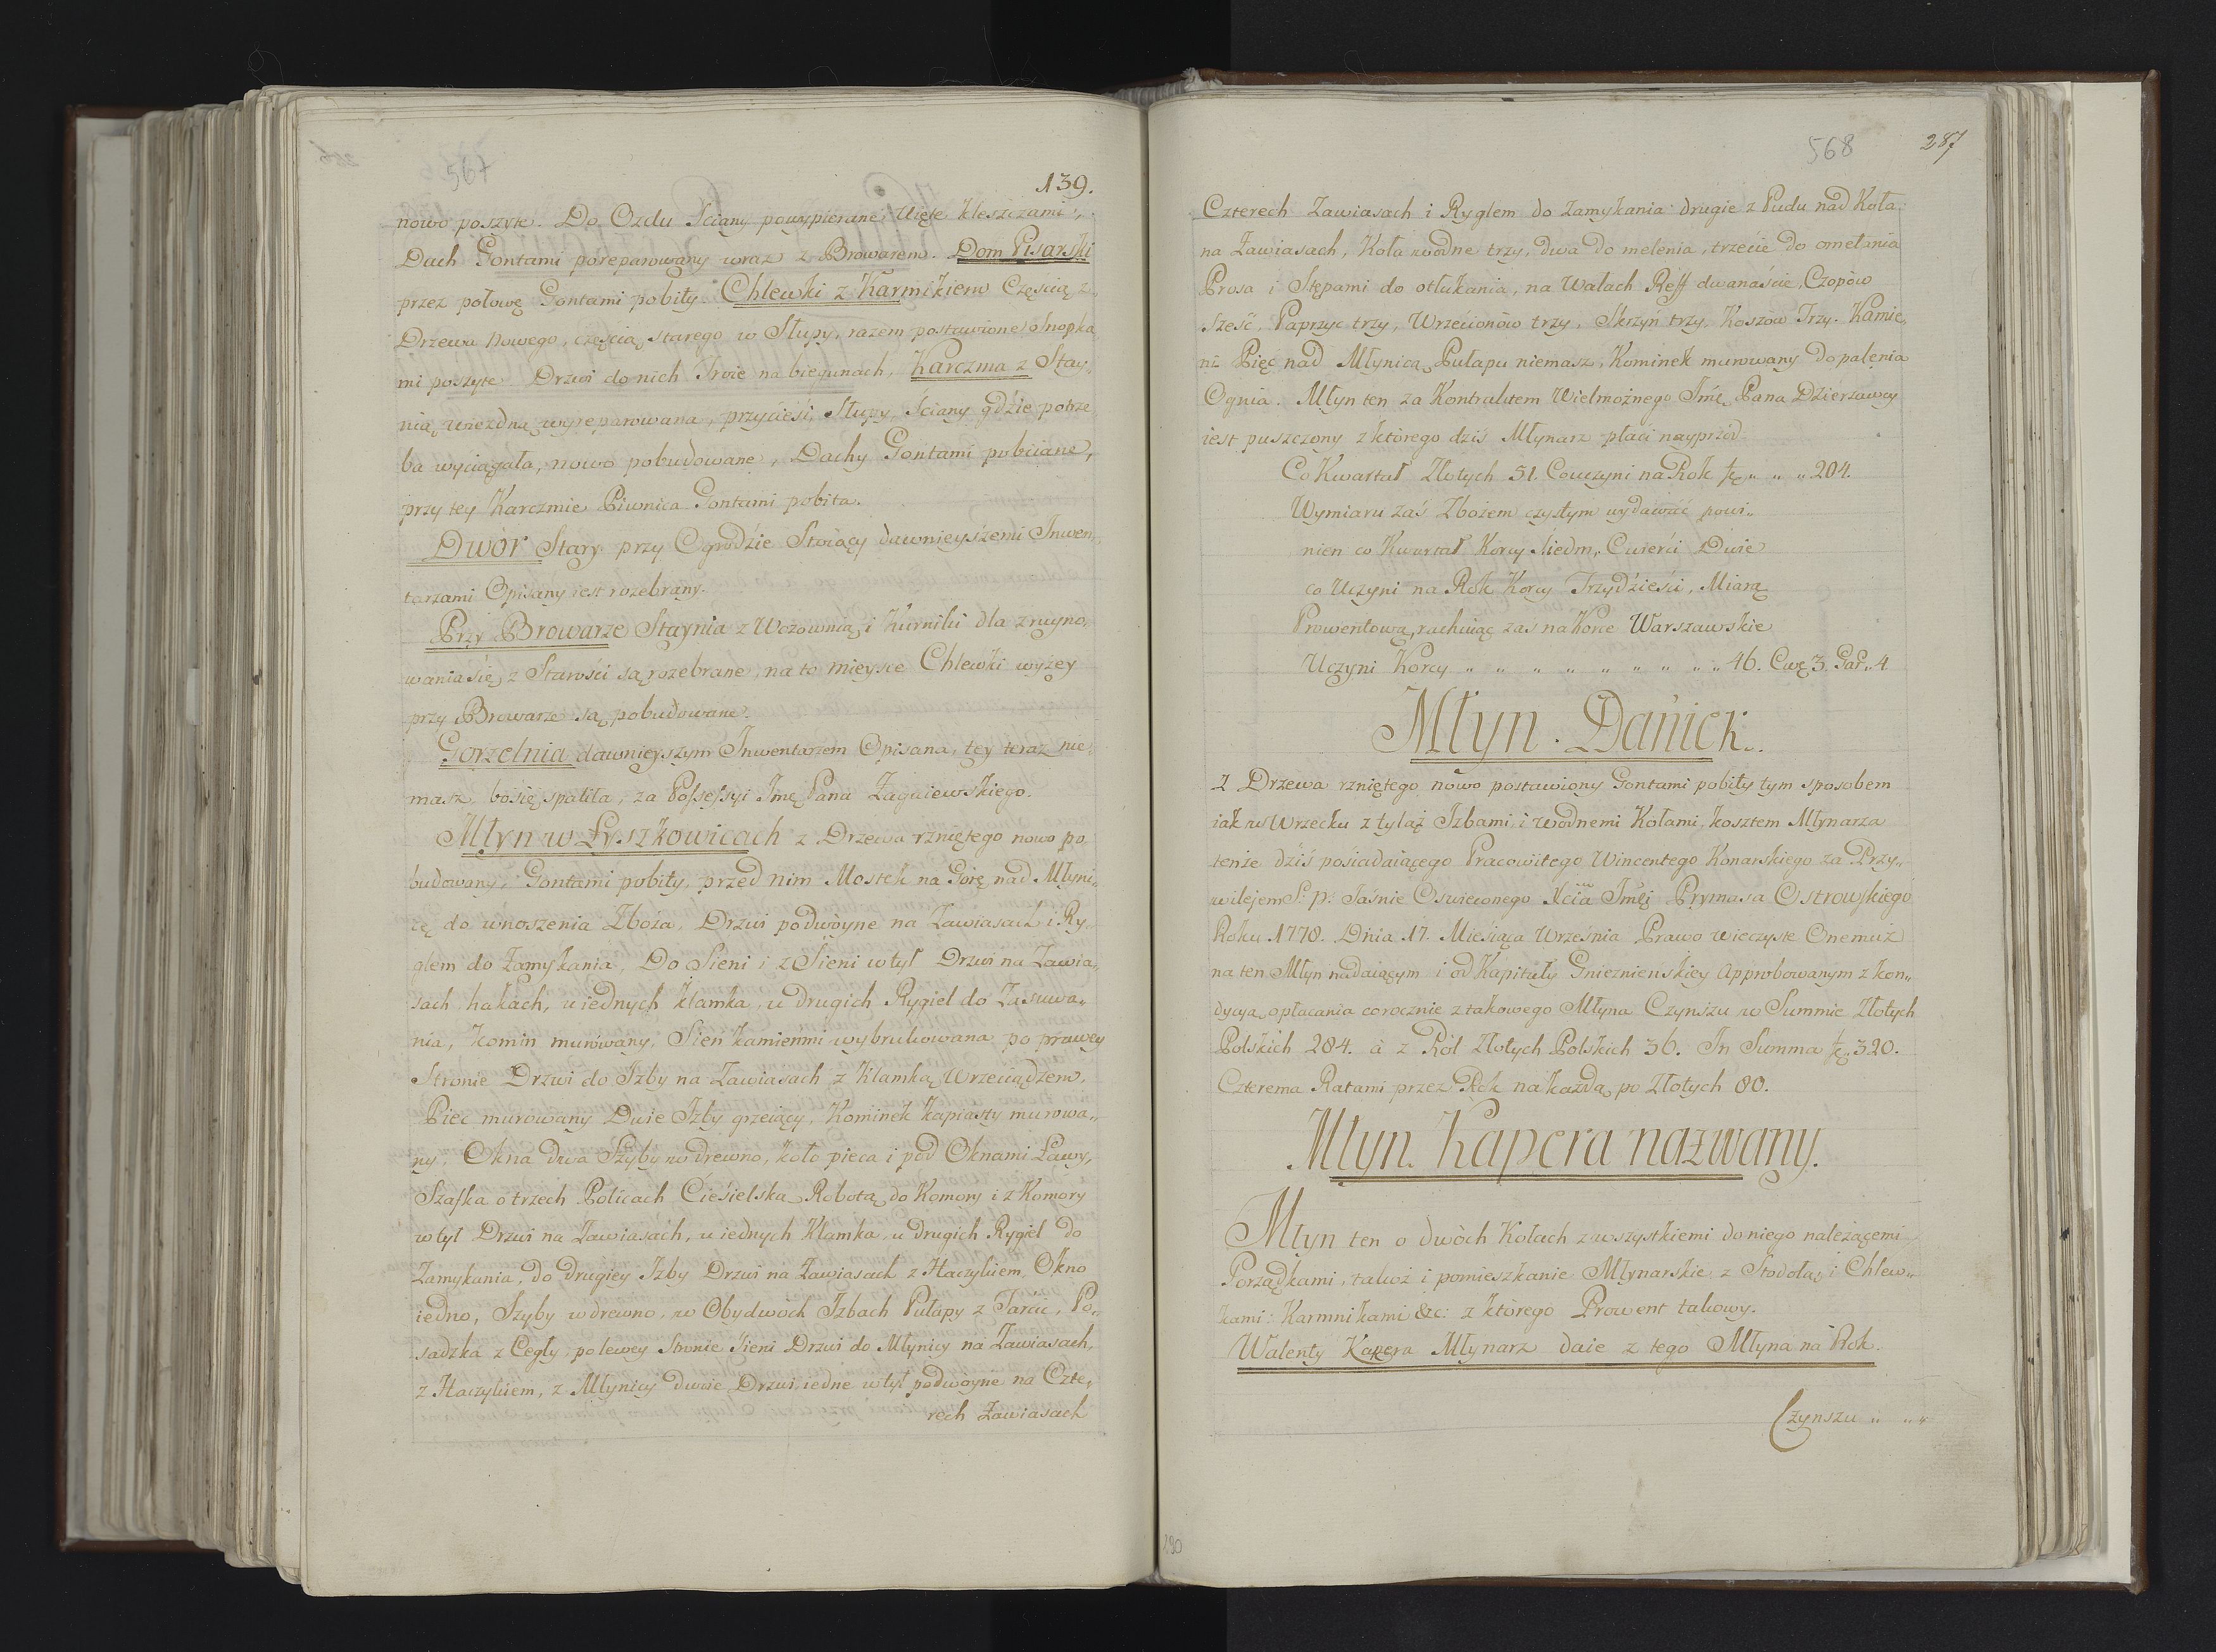 567
139.
nowo poszyte. Do Ozdu Sciany powypierane Ujęte kleszczami„
Dach Gontami poreparowany wraz z Browarem. Dom Pisarski
przez połowę Gontami pobity. Chlewki z Karmikiem Częścią z„
Drzewa Nowego, częścią starego w Słupy, razem postawione Snopka
mi poszyte Drzwi do nich Troie na biegunach, Karczma z Stay„
nią wiezdną wyreparowana, przycieśi Słupy Sciany gdzie potrze
ba wyciągała, nowo pobudowane, Dachy Gontami pobiiane,
przy tey Karczmie Piwnica Gontami pobita.
Dwór Stary przy Ogrodzie Stoiący dawnieyszemi Inwen„
tarzami Opisany iest rozebrany.
Przy Browarze Staynia z Wozownią i Kurniki dla zruyno„
wania się z Starości są rozebrane, na to mieysce Chlewki wyżey
przy Browarze są pobudowane.
Gorzelnia dawnieyszym Inwentarzem Opisana, tey teraz nie„
masz bo się spaliła, za Possessyi Jmę Pana Zagaiewskiego.
Młyn w Łyszkowicach z Drzewa rzniętego nowo po
budowany, Gontami pobity, przed nim Mostek na Górę nad Młyni„
cę do wnoszenia Zboża, Drzwi podwóyne na Zawiasach i Ry„
glem do Zamykania, Do Sieni i z Sieni w tył Drzwi na Zawia„
sach hakach, u iednych klamka, u drugich Rygiel do Zasuwa„
nia, Komin murowany, Sień kamienmi wybrukowana po prawey
Stronie Drzwi do Izby na Zawiasach z Klamką Wrzeciądzem,
Piec murowany Dwie Izby grzeiący, Kominek kapiasty murowa„
ny, Okna dwa Szyby w drewno, koło pieca i pod Oknami Ławy,
Szafka o trzech Policach Ciesielska Robotą, do Komory i z Komory
w tył Drzwi na Zawiasach, u iednych Klamka, u drugich Rygiel do
Zamykania, do drugiey Izby Drzwi na Zawiasach z Haczykiem, Okno
iedno, Szyby w drewno, w Obydwóch Izbach Pułapy z Tarcic, Po„
sadzka z Cegły, po lewey Stronie Sieni Drzwi do Młynicy na Zawiasach,
z Haczykiem, z Młynicy dwoie Drzwi, iedne w tył podwóyne na Czte„
rech Zawiasach
568
287
Czterech Zawiasach i Ryglem do Zamykania drugie z Pudu nad Koła
na Zawiasach, Koła wodne trzy, dwa do melenia, trzecie do omełania
Prosa i Stępami do otłukania, na Wałach Reff dwanaście, Czopów
sześć, Paprzyc trzy, Wrzecionów trzy, Skrzyń trzy, Koszów Trzy. Kamie„
ni Pięć nad Młynicą Pułapu niemasz, Kominek murowany do palenia
Ognia. Młyn ten za Kontraktem Wielmożnego Jmę Pana Dzierżawcy
iest puszczony z którego dziś Młynarz płaci nayprzód
Co Kwartał Złotych 51. Co uczyni na Rok „ „ „ 204.
Wymiaru zaś Zbożem czystym wydawać powi„
nien co Kwartał Korcy Siedm, Cwierci Dwie
co Uczyni na Rok Korcy Trzydzieści, Miarą
Prowentową, rachując zas na Korce Warszawskie
Uczyni Korcy „ „ „ „ „ „ „ „ „ 46. Cwę 3. Gar„ 4
Młyn. Daniek.
Z Drzewa rzniętego nowo postawiony Gontami pobity tym sposobem
iak w Wrzecku z tyląż Izbami, i wodnemi Kołami kosztem Młynarza
tenże dziś posiadaiącego Pracowitego Wincentego Konarskiego za Przy„
wilejem S. p. Jaśnie Oswieconego Xcia Jmci Prymasa Ostrowskiego
Roku 1778. Dnia 17. Miesiąca Września Prawo wieczyste Onemuż
na ten Młyn nadaiącym i od Kapituły Gnieznienskiey Approbowanym z kon„
dycyą opłacania corocznie z takowego Młyna Czynszu w Summie Złotych
Polskich 284. à z Ról Złotych Polskich 36. In Summa 320.
Czterema Ratami przez Rok na każdą po Złotych 80.
Młyn. Kapera nazwany.
Młyn ten o dwóch Kołach z wszystkiemi do niego należącemi
Porządkami, takoż i pomieszkanie Młynarskie z Stodołą i Chlew„
kami: Karmnikami &c: z którego Prowent takowy.
Walenty Kapera Młynarz daie z tego Młyna na Rok.
Czynszu „ „„
290